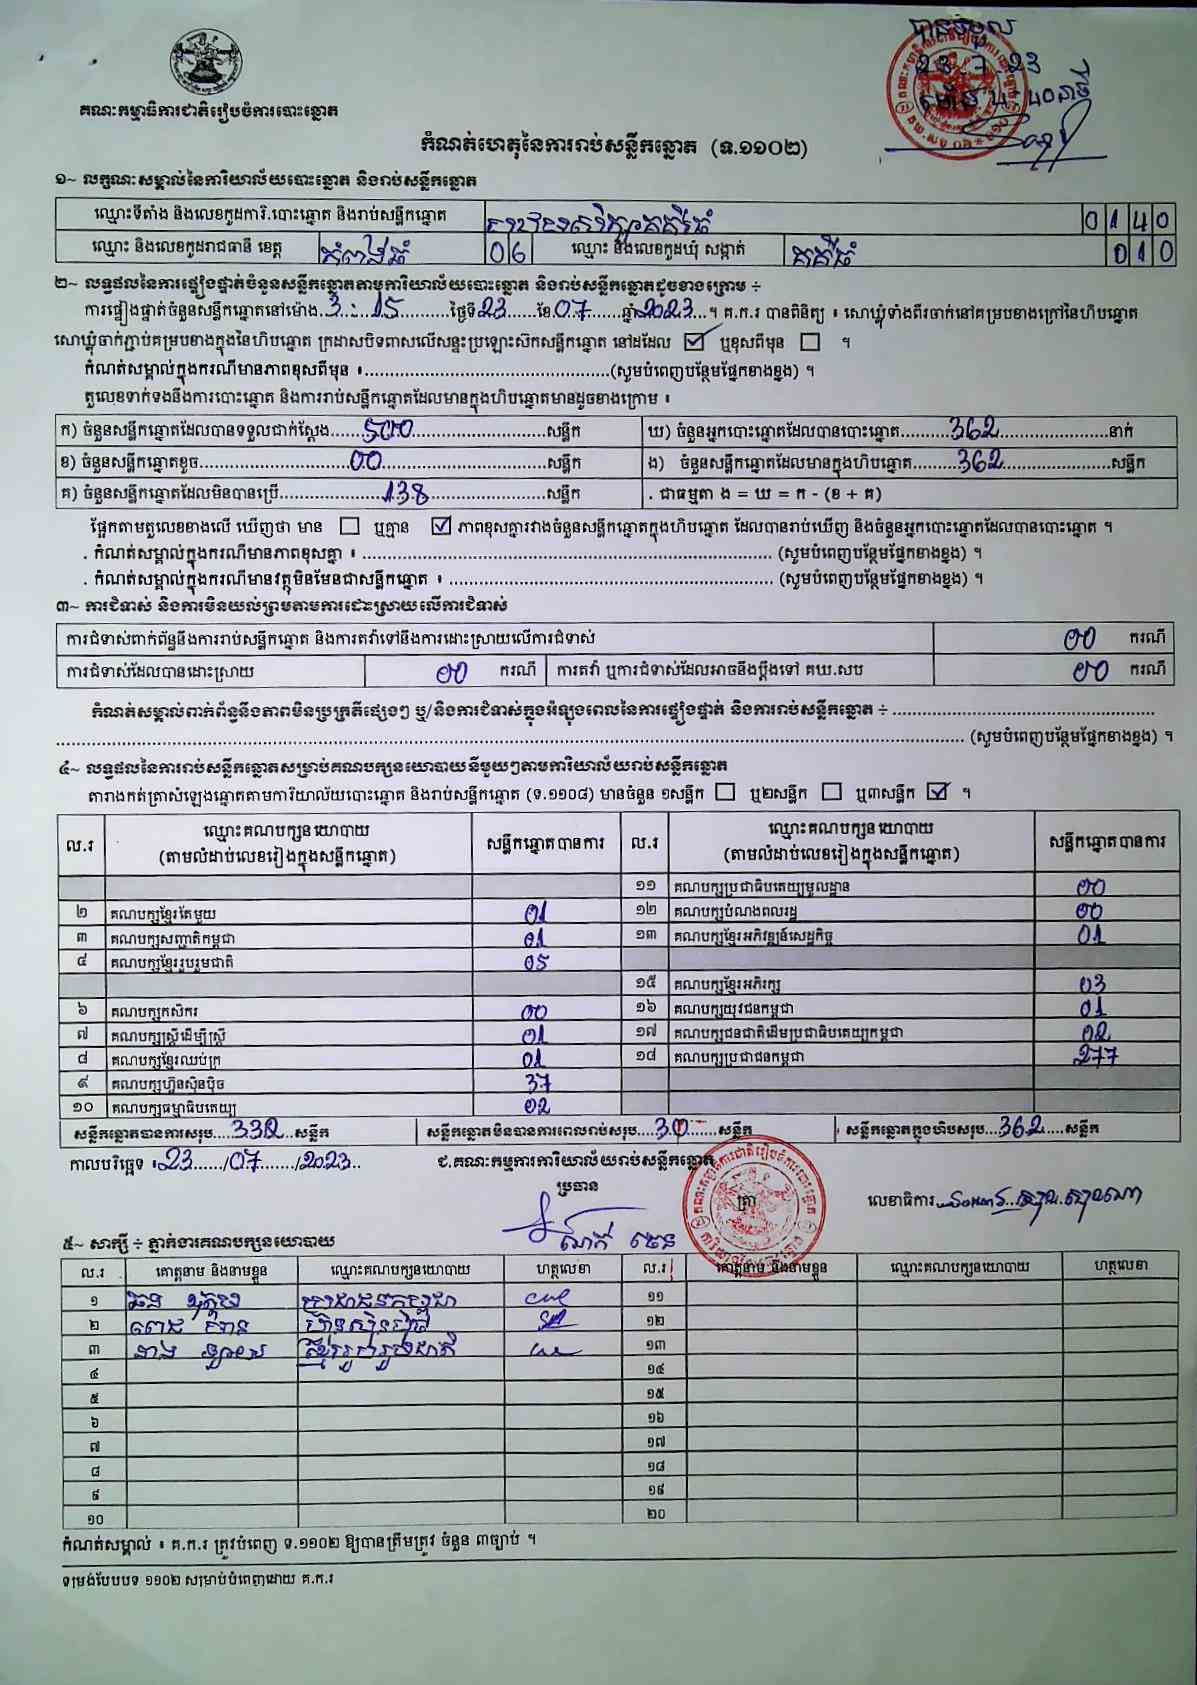 គណៈកម្មាធិការជាតិរៀបចំការបោះឆ្នោត
បានទទួល
23 7 23
ម៉ោង 4 40នាទី
កំណត់ហេតុនៃការរាប់សន្លឹកឆ្នោត (ទ.១១០២)
១~ លក្ខណៈសម្គាល់នៃការិយាល័យបោះឆ្នោត និងរាប់សន្លឹកឆ្នោត
ឈ្មោះទីតាំង និងលេខកូដការិ.បោះឆ្នោត និងរាប់សន្លឹកឆ្នោត 0140
ឈ្មោះ និងលេខកូដរាជធានី ខេត្ត កំពង់ធំ 06 ឈ្មោះ និងលេខកូដឃុំ សង្កាត់ គគីធំ 010
២~ លទ្ធផលនៃការផ្ទៀងផ្ទាត់ចំនួនសន្លឹកឆ្នោតតាមការិយាល័យបោះឆ្នោត និងរាប់សន្លឹកឆ្នោតដូចខាងក្រោម ÷
ការផ្ទៀងផ្ទាត់ចំនួនសន្លឹកឆ្នោតនៅម៉ោង 3:15 ថ្ងៃទី 23 ខែ 07 ឆ្នាំ 2023 ។ គ.ក.រ បានពិនិត្យ ៖ សោឃ្លុំទាំងពីរចាក់នៅគម្របខាងក្រៅនៃហិបឆ្នោត
សោឃ្លុំចាក់ភ្ជាប់គម្របខាងក្នុងនៃហិបឆ្នោត ក្រដាសបិទពាសលើសន្ទះប្រឡោះស៊កសន្លឹកឆ្នោត នៅដដែល ☑ ឬខុសពីមុន ☐ ។
កំណត់សម្គាល់ក្នុងករណីមានភាពខុសពីមុន ៖ ........ (សូមបំពេញបន្ថែមផ្នែកខាងខ្នង) ។
តួលេខទាក់ទងនឹងការបោះឆ្នោត និងការរាប់សន្លឹកឆ្នោតដែលមានក្នុងហិបឆ្នោតមានដូចខាងក្រោម ៖
ក) ចំនួនសន្លឹកឆ្នោតដែលបានទទួលជាក់ស្តែង 500 សន្លឹក ឃ) ចំនួនអ្នកបោះឆ្នោតដែលបានបោះឆ្នោត 362 នាក់
ខ) ចំនួនសន្លឹកឆ្នោតខូច 00 សន្លឹក ង) ចំនួនសន្លឹកឆ្នោតដែលមានក្នុងហិបឆ្នោត 362 សន្លឹក
គ) ចំនួនសន្លឹកឆ្នោតដែលមិនបានប្រើ 138 សន្លឹក . ជាធម្មតា ង = ឃ = ក - (ខ + គ)
ផ្អែកតាមតួលេខខាងលើ ឃើញថា មាន ☐ ឬគ្មាន ☑ ភាពខុសគ្នារវាងចំនួនសន្លឹកឆ្នោតក្នុងហិបឆ្នោត ដែលបានរាប់ឃើញ និងចំនួនអ្នកបោះឆ្នោតដែលបានបោះឆ្នោត ។
. កំណត់សម្គាល់ក្នុងករណីមានភាពខុសគ្នា ៖ ........ (សូមបំពេញបន្ថែមផ្នែកខាងខ្នង) ។
. កំណត់សម្គាល់ក្នុងករណីមានវត្ថុមិនមែនជាសន្លឹកឆ្នោត ៖ ........ (សូមបំពេញបន្ថែមផ្នែកខាងខ្នង) ។
៣~ ការជំទាស់ និងការមិនយល់ព្រមតាមការដោះស្រាយលើការជំទាស់
ការជំទាស់ពាក់ព័ន្ធនឹងការរាប់សន្លឹកឆ្នោត និងការតវ៉ាទៅនឹងការដោះស្រាយលើការជំទាស់ 00 ករណី
ការជំទាស់ដែលបានដោះស្រាយ 00 ករណី ការតវ៉ា ឬការជំទាស់ដែលអាចនឹងប្តឹងទៅ គឃ.សប 00 ករណី
កំណត់សម្គាល់ពាក់ព័ន្ធនឹងភាពមិនប្រក្រតីផ្សេងៗ ឬ/និងការជំទាស់ក្នុងអំឡុងពេលនៃការផ្ទៀងផ្ទាត់ និងការរាប់សន្លឹកឆ្នោត ÷ ........
........ (សូមបំពេញបន្ថែមផ្នែកខាងខ្នង) ។
៤~ លទ្ធផលនៃការរាប់សន្លឹកឆ្នោតសម្រាប់គណបក្សនយោបាយនីមួយៗតាមការិយាល័យរាប់សន្លឹកឆ្នោត
តារាងកត់ត្រាសំឡេងឆ្នោតតាមការិយាល័យបោះឆ្នោត និងរាប់សន្លឹកឆ្នោត (ទ.១១០៨) មានចំនួន ១សន្លឹក ☐ ឬ២សន្លឹក ☐ ឬ៣សន្លឹក ☑ ។
ល.រ ឈ្មោះគណបក្សនយោបាយ (តាមលំដាប់លេខរៀងក្នុងសន្លឹកឆ្នោត) សន្លឹកឆ្នោតបានការ ល.រ ឈ្មោះគណបក្សនយោបាយ (តាមលំដាប់លេខរៀងក្នុងសន្លឹកឆ្នោត) សន្លឹកឆ្នោតបានការ
១១ គណបក្សប្រជាធិបតេយ្យមូលដ្ឋាន 00
២ គណបក្សខ្មែរតែមួយ 01 ១២ គណបក្សបំណងពលរដ្ឋ 00
៣ គណបក្សសញ្ជាតិកម្ពុជា 01 ១៣ គណបក្សខ្មែរអភិវឌ្ឍន៍សេដ្ឋកិច្ច 01
៤ គណបក្សខ្មែររួបរួមជាតិ 05
១៥ គណបក្សខ្មែរអភិរក្ស 03
៦ គណបក្សកសិករ 00 ១៦ គណបក្សយុវជនកម្ពុជា 01
៧ គណបក្សស្ត្រីដើម្បីស្ត្រី 01 ១៧ គណបក្សជនជាតិដើមប្រជាធិបតេយ្យកម្ពុជា 02
៨ គណបក្សខ្មែរឈប់ក្រ 01 ១៨ គណបក្សប្រជាជនកម្ពុជា 277
៩ គណបក្សហ៊្វុនស៊ិនប៉ិច 37
១០ គណបក្សធម្មាធិបតេយ្យ 02
សន្លឹកឆ្នោតបានការសរុប 332 សន្លឹក សន្លឹកឆ្នោតមិនបានការពេលរាប់សរុប 30 សន្លឹក សន្លឹកឆ្នោតក្នុងហិបសរុប 362 សន្លឹក
កាលបរិច្ឆេទ ៖ 23/07/2023 ជ.គណៈកម្មការការិយាល័យរាប់សន្លឹកឆ្នោត
ប្រធាន ត្រា លេខាធិការ
៥~ សាក្សី ÷ ភ្នាក់ងារគណបក្សនយោបាយ
ល.រ គោត្តនាម និងនាមខ្លួន ឈ្មោះគណបក្សនយោបាយ ហត្ថលេខា ល.រ គោត្តនាម និងនាមខ្លួន ឈ្មោះគណបក្សនយោបាយ ហត្ថលេខា
១ ប្រជាជនកម្ពុជា ១១
២ ហ៊្វុនស៊ិនប៉ិច ១២
៣ ខ្មែររួបរួមជាតិ ១៣
៤ ១៤
៥ ១៥
៦ ១៦
៧ ១៧
៨ ១៨
៩ ១៩
១០ ២០
កំណត់សម្គាល់ ៖ គ.ក.រ ត្រូវបំពេញ ទ.១១០២ ឱ្យបានត្រឹមត្រូវ ចំនួន ៣ច្បាប់ ។
ទម្រង់បែបបទ ១១០២ សម្រាប់បំពេញដោយ គ.ក.រ